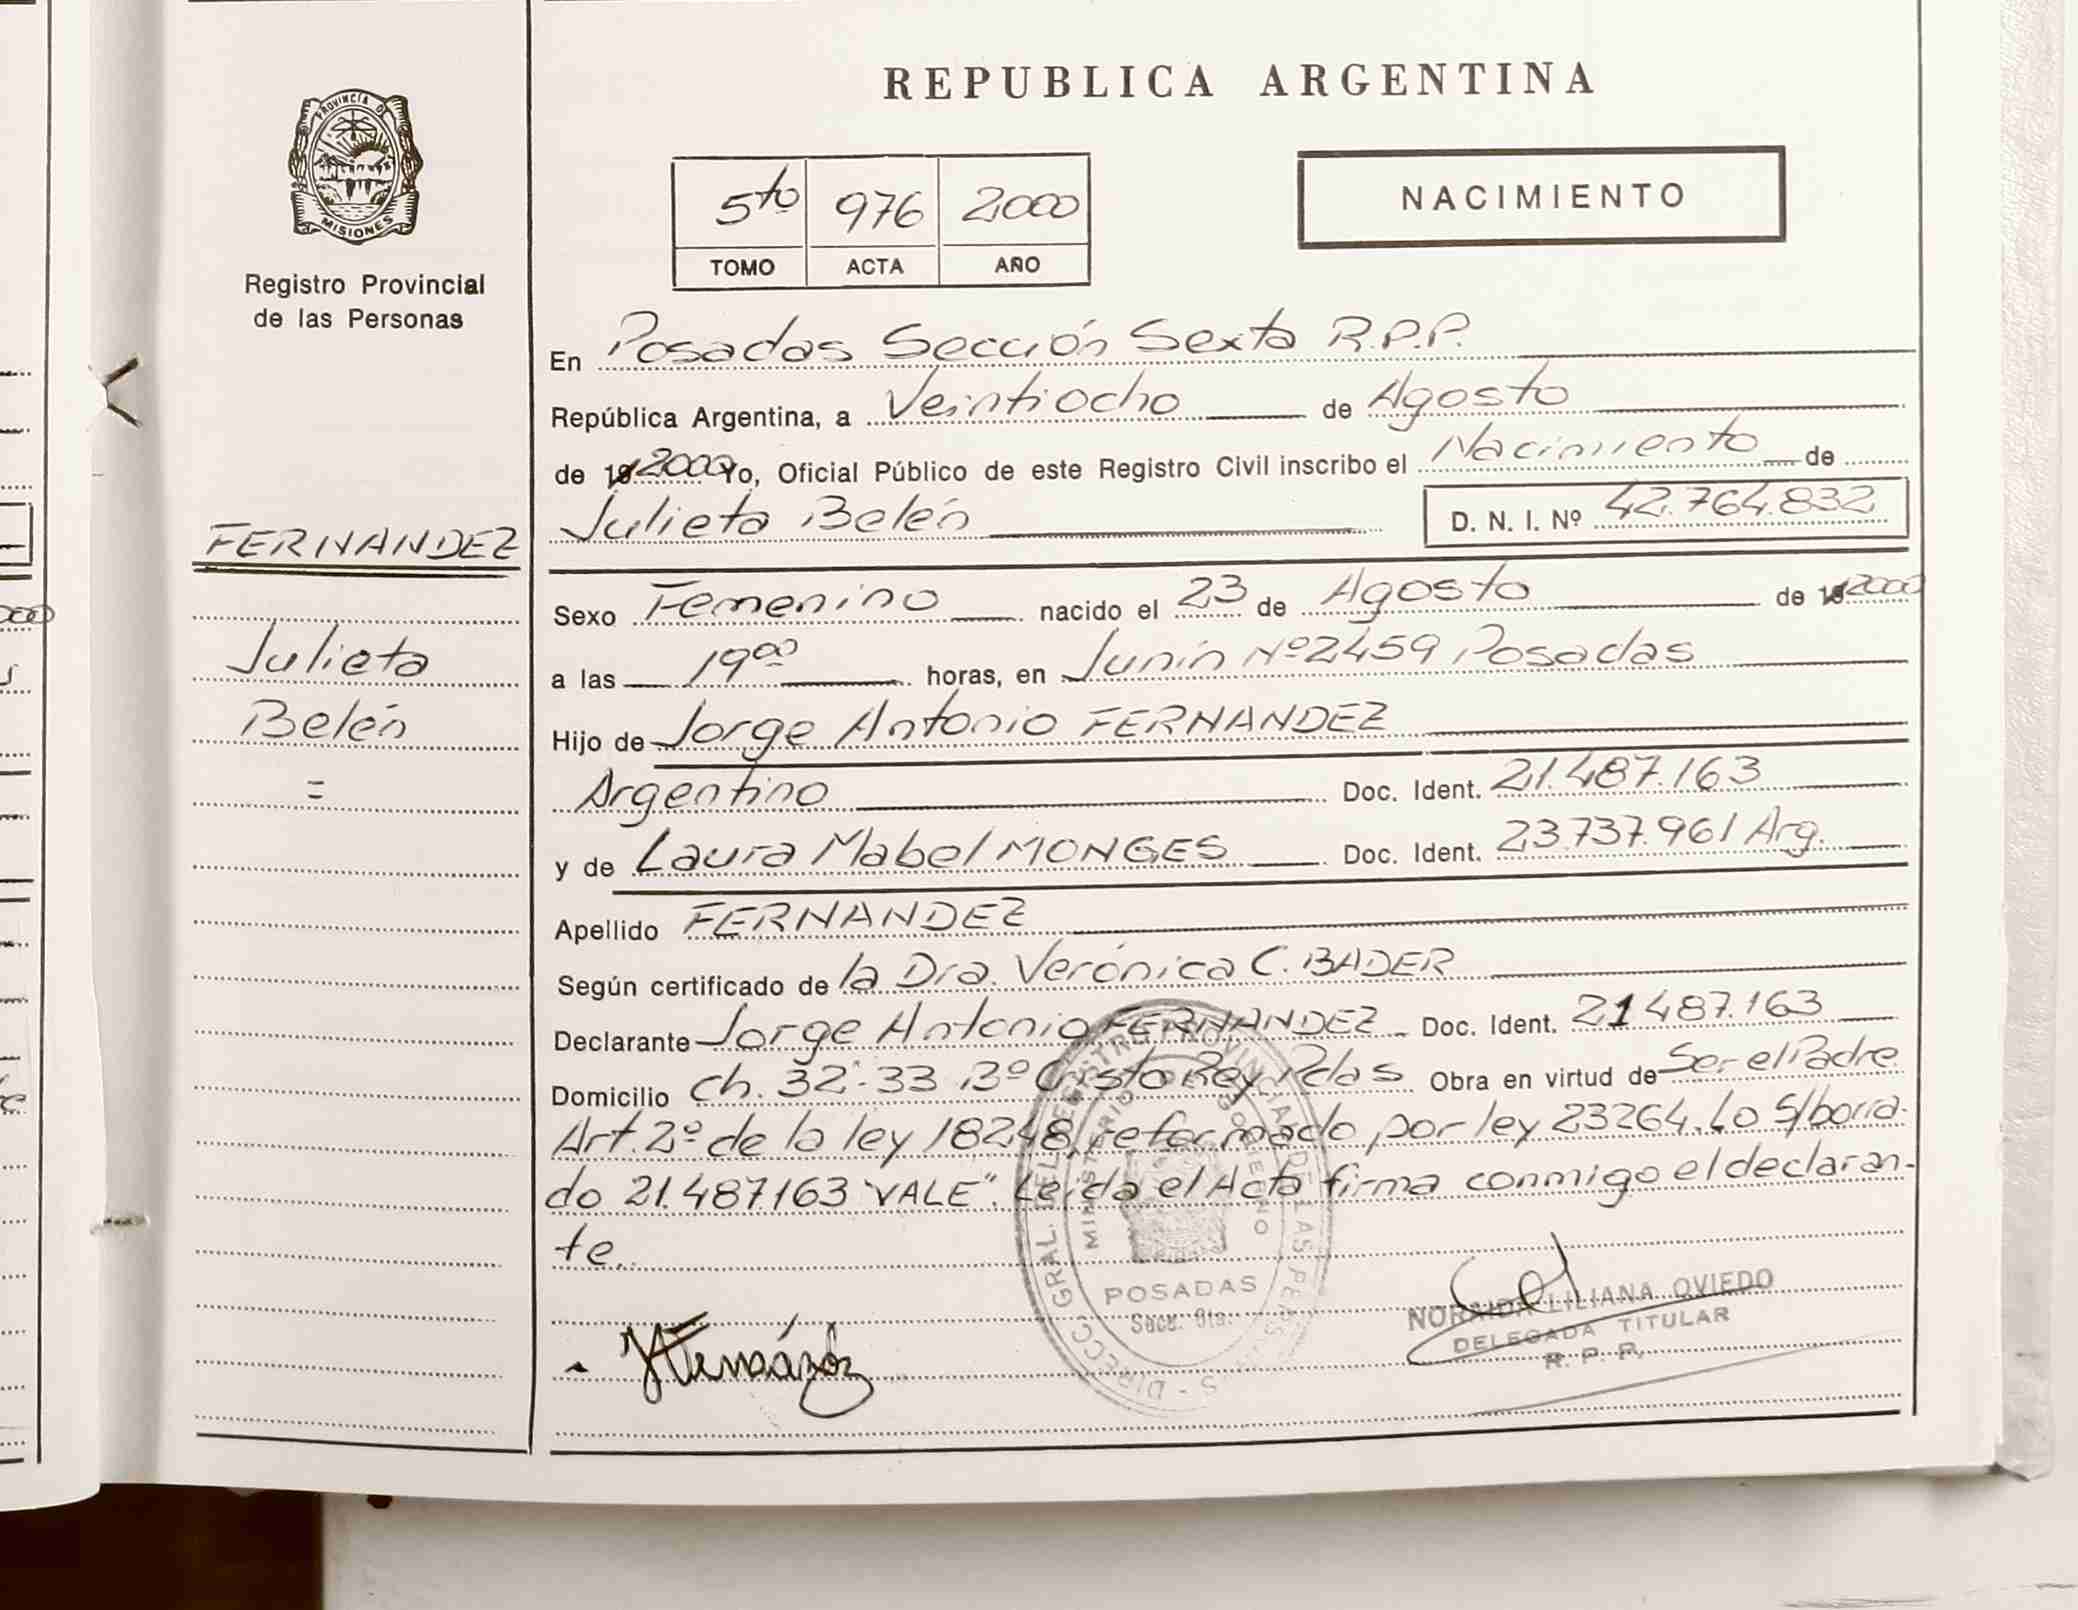 PROVINCIA DE
MISIONES
Registro Provincial
de las Personas
FERNANDEZ
Julieta
Belén
=
REPUBLICA ARGENTINA
5to 976 2000
TOMO ACTA AÑO
NACIMIENTO
En Posadas Sección Sexta R.P.P.
República Argentina, a Veintiocho de Agosto
de 19 2000 Yo, Oficial Público de este Registro Civil inscribo el Nacimiento de
Julieta Belén D. N. I. Nº 42.764.832
Sexo Femenino nacido el 23 de Agosto de 19 2000
a las 19⁰⁰ horas, en Junín Nº 2459 Posadas
Hijo de Jorge Antonio FERNANDEZ
Argentino Doc. Ident. 21.487.163
y de Laura Mabel MONGES Doc. Ident. 23.737.961 Arg.
Apellido FERNANDEZ
Según certificado de la Dra. Verónica C. BADER
Declarante Jorge Antonio FERNANDEZ Doc. Ident. 21487.163
Domicilio Ch. 32-33 Bº Cristo Rey Pdas Obra en virtud de Ser el Padre
Art. 2º de la ley 18248, reformado por ley 23264. Lo S/borra-
do 21.487.163 "VALE". Leída el Acta firma conmigo el declaran-
te.
DIRECC. GRAL. DEL REGISTRO PROVINCIAL DE LAS PERSONAS
MINISTERIO DE GOBIERNO
POSADAS
Secc. 6ta.
Fernández
NORAIDA LILIANA OVIEDO
DELEGADA TITULAR
R. P. P.